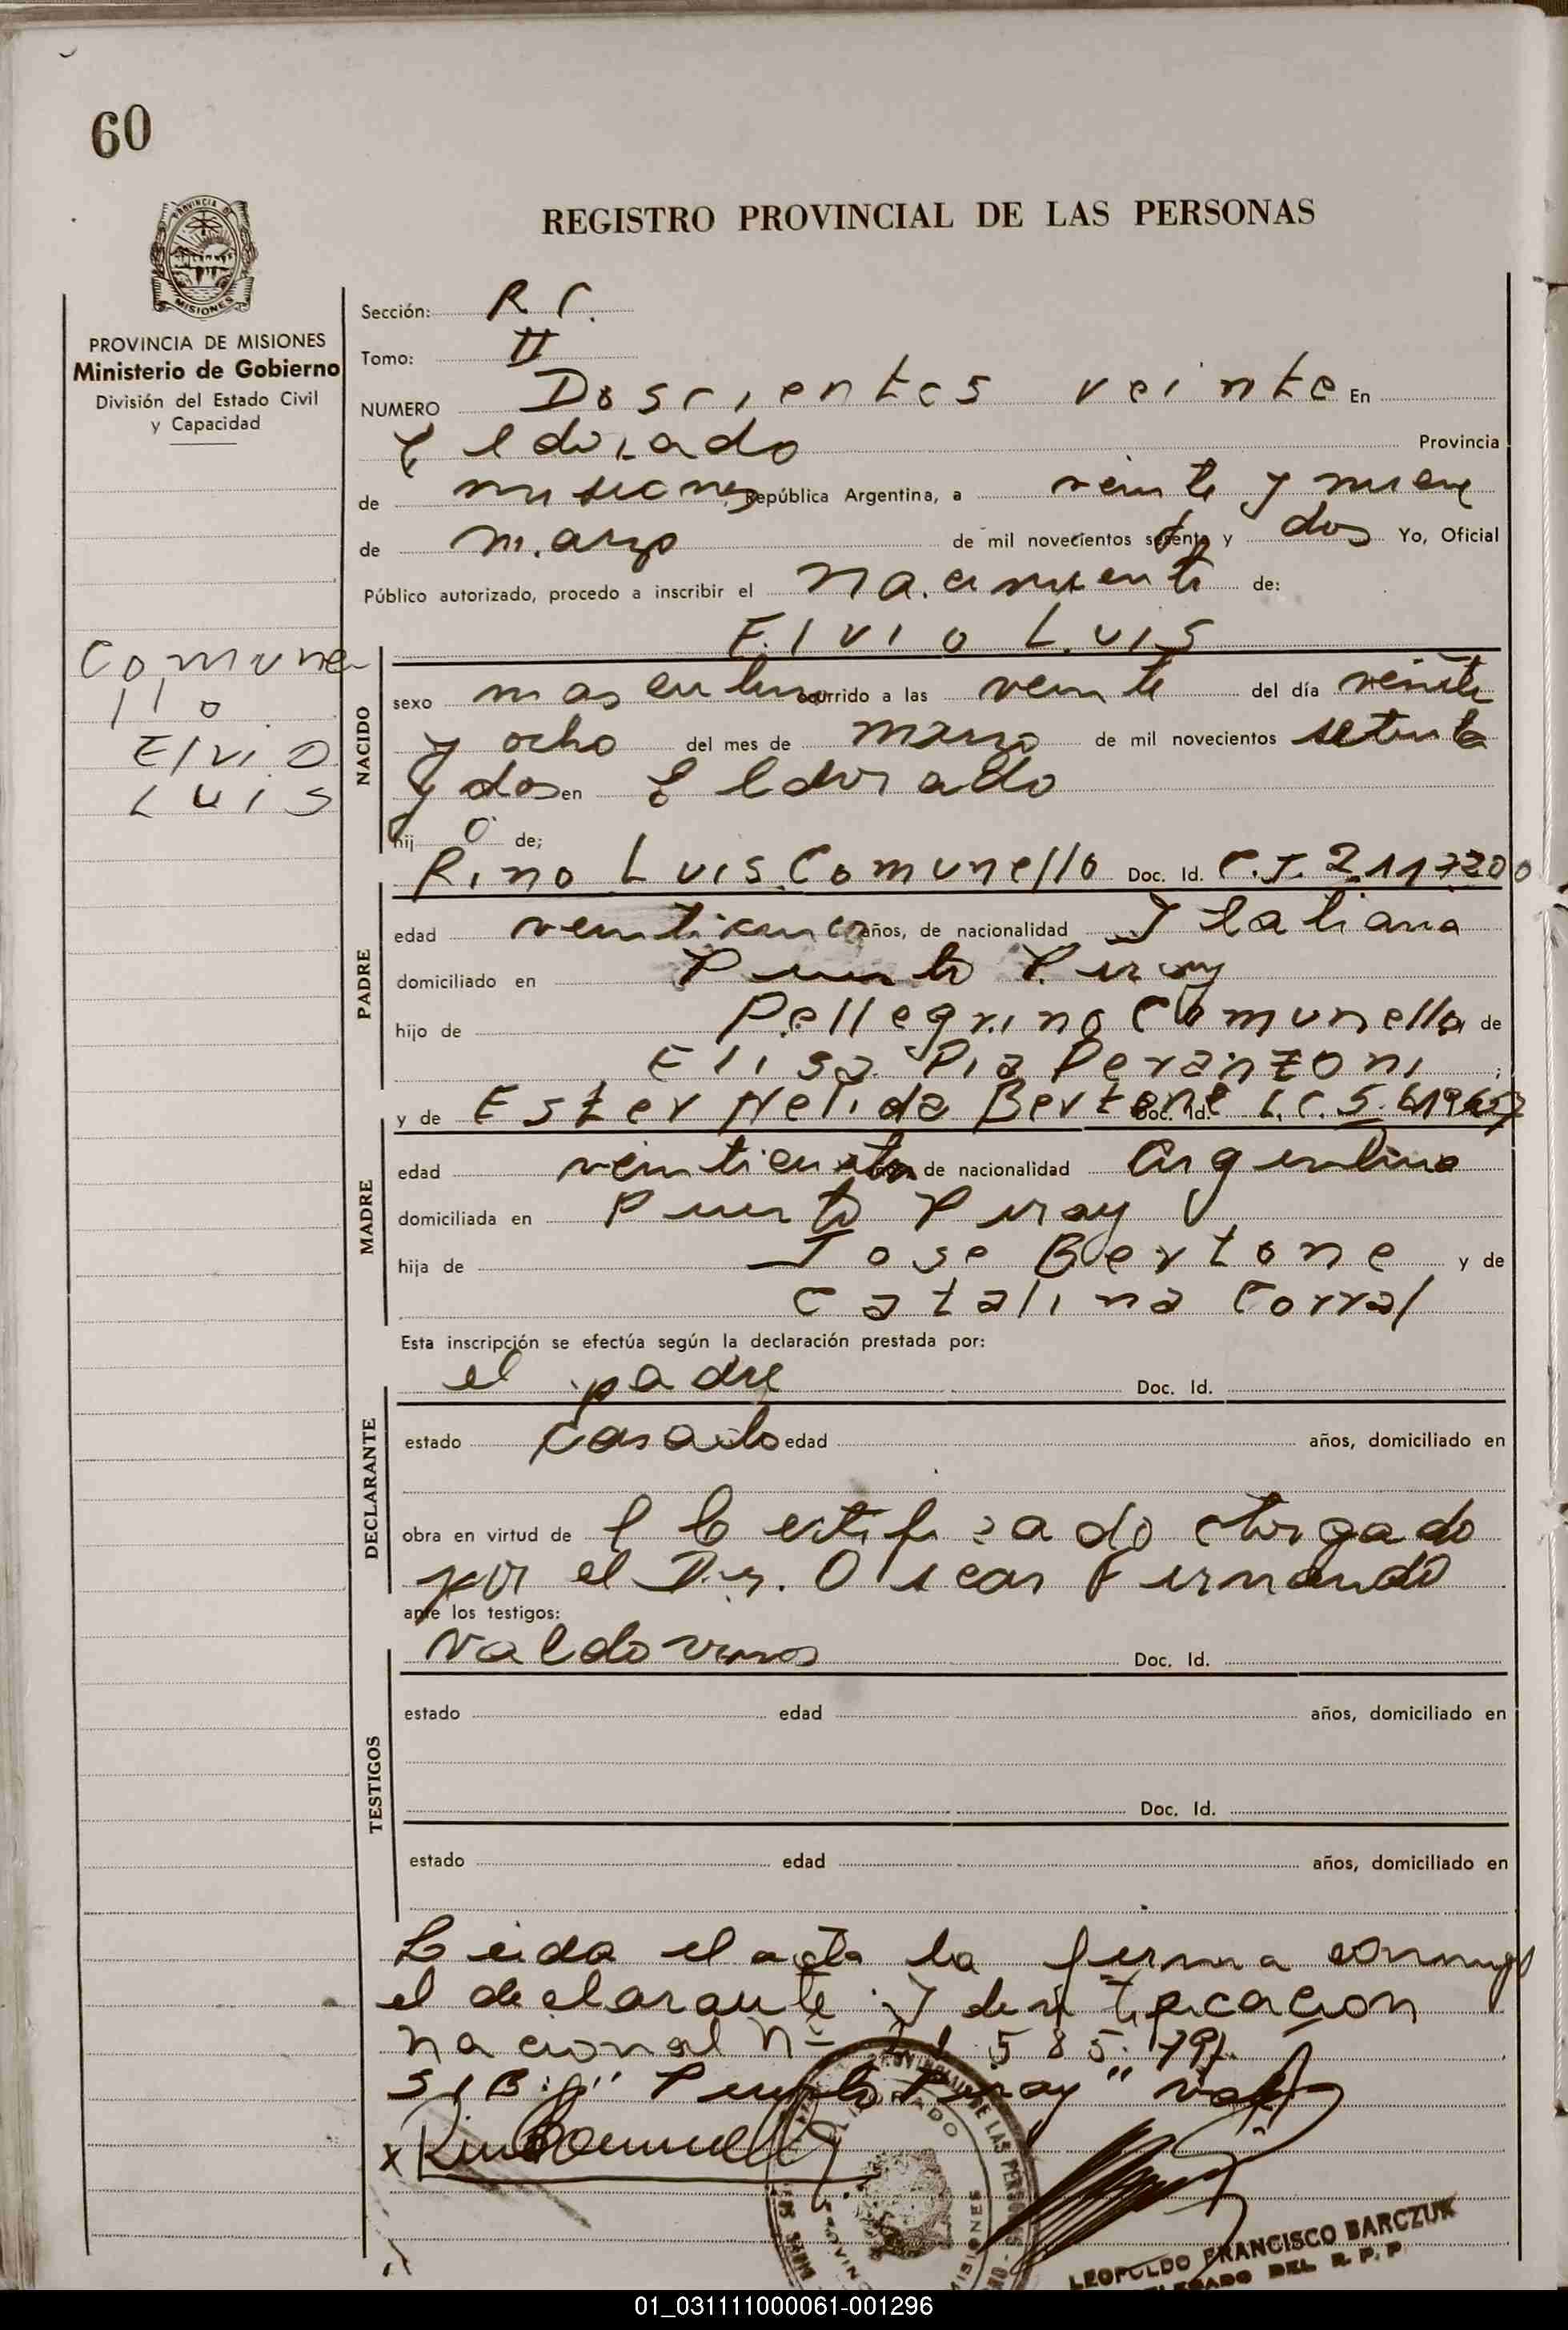 60
REGISTRO PROVINCIAL DE LAS PERSONAS
PROVINCIA DE MISIONES
Ministerio de Gobierno
División del Estado Civil
y Capacidad
Comune
llo
Elvio
LUIS
Sección:
Tomo: II
NUMERO Doscientos veinte En
Eldorado Provincia
de misiones República Argentina, a veinte y nueve
de marzo de mil novecientos y dos Yo, Oficial
Público autorizado, procedo a inscribir el nacimiento de:
Elvio Luis
NACIDO
sexo masculino ocurrido a las veinte del día veinte
y ocho del mes de marzo de mil novecientos setenta
y dos en Eldorado
hij o de;
Rino Luis Comunello Doc. Id. C.I. 2117200
PADRE
edad años, de nacionalidad Italiana
domiciliado en Puerto Piray
hijo de Pellegrino Comunello y de
Elisa Pia Peranzoni ;
y de Ester Nelida Bertone Doc. Id. L.C.
MADRE
edad veinticuatro años de nacionalidad Argentina
domiciliada en Puerto Piray
hija de Jose Bertone y de
Catalina Corral
Esta inscripción se efectúa según la declaración prestada por:
el padre Doc. Id.
DECLARANTE
estado casado edad años, domiciliado en
obra en virtud de Certificado otorgado
por el Dr. Oscar Fernando
ante los testigos:
Valdovinos Doc. Id.
TESTIGOS
estado edad años, domiciliado en
Doc. Id.
estado edad años, domiciliado en
Leida el acta la firma conmigo
el declarante Identificacion
nacional Nº
S/B: "Puerto Piray" vale
LEOPOLDO FRANCISCO BARCZUK
DELEGADO DEL R. P. P.
01_031111000061-001296